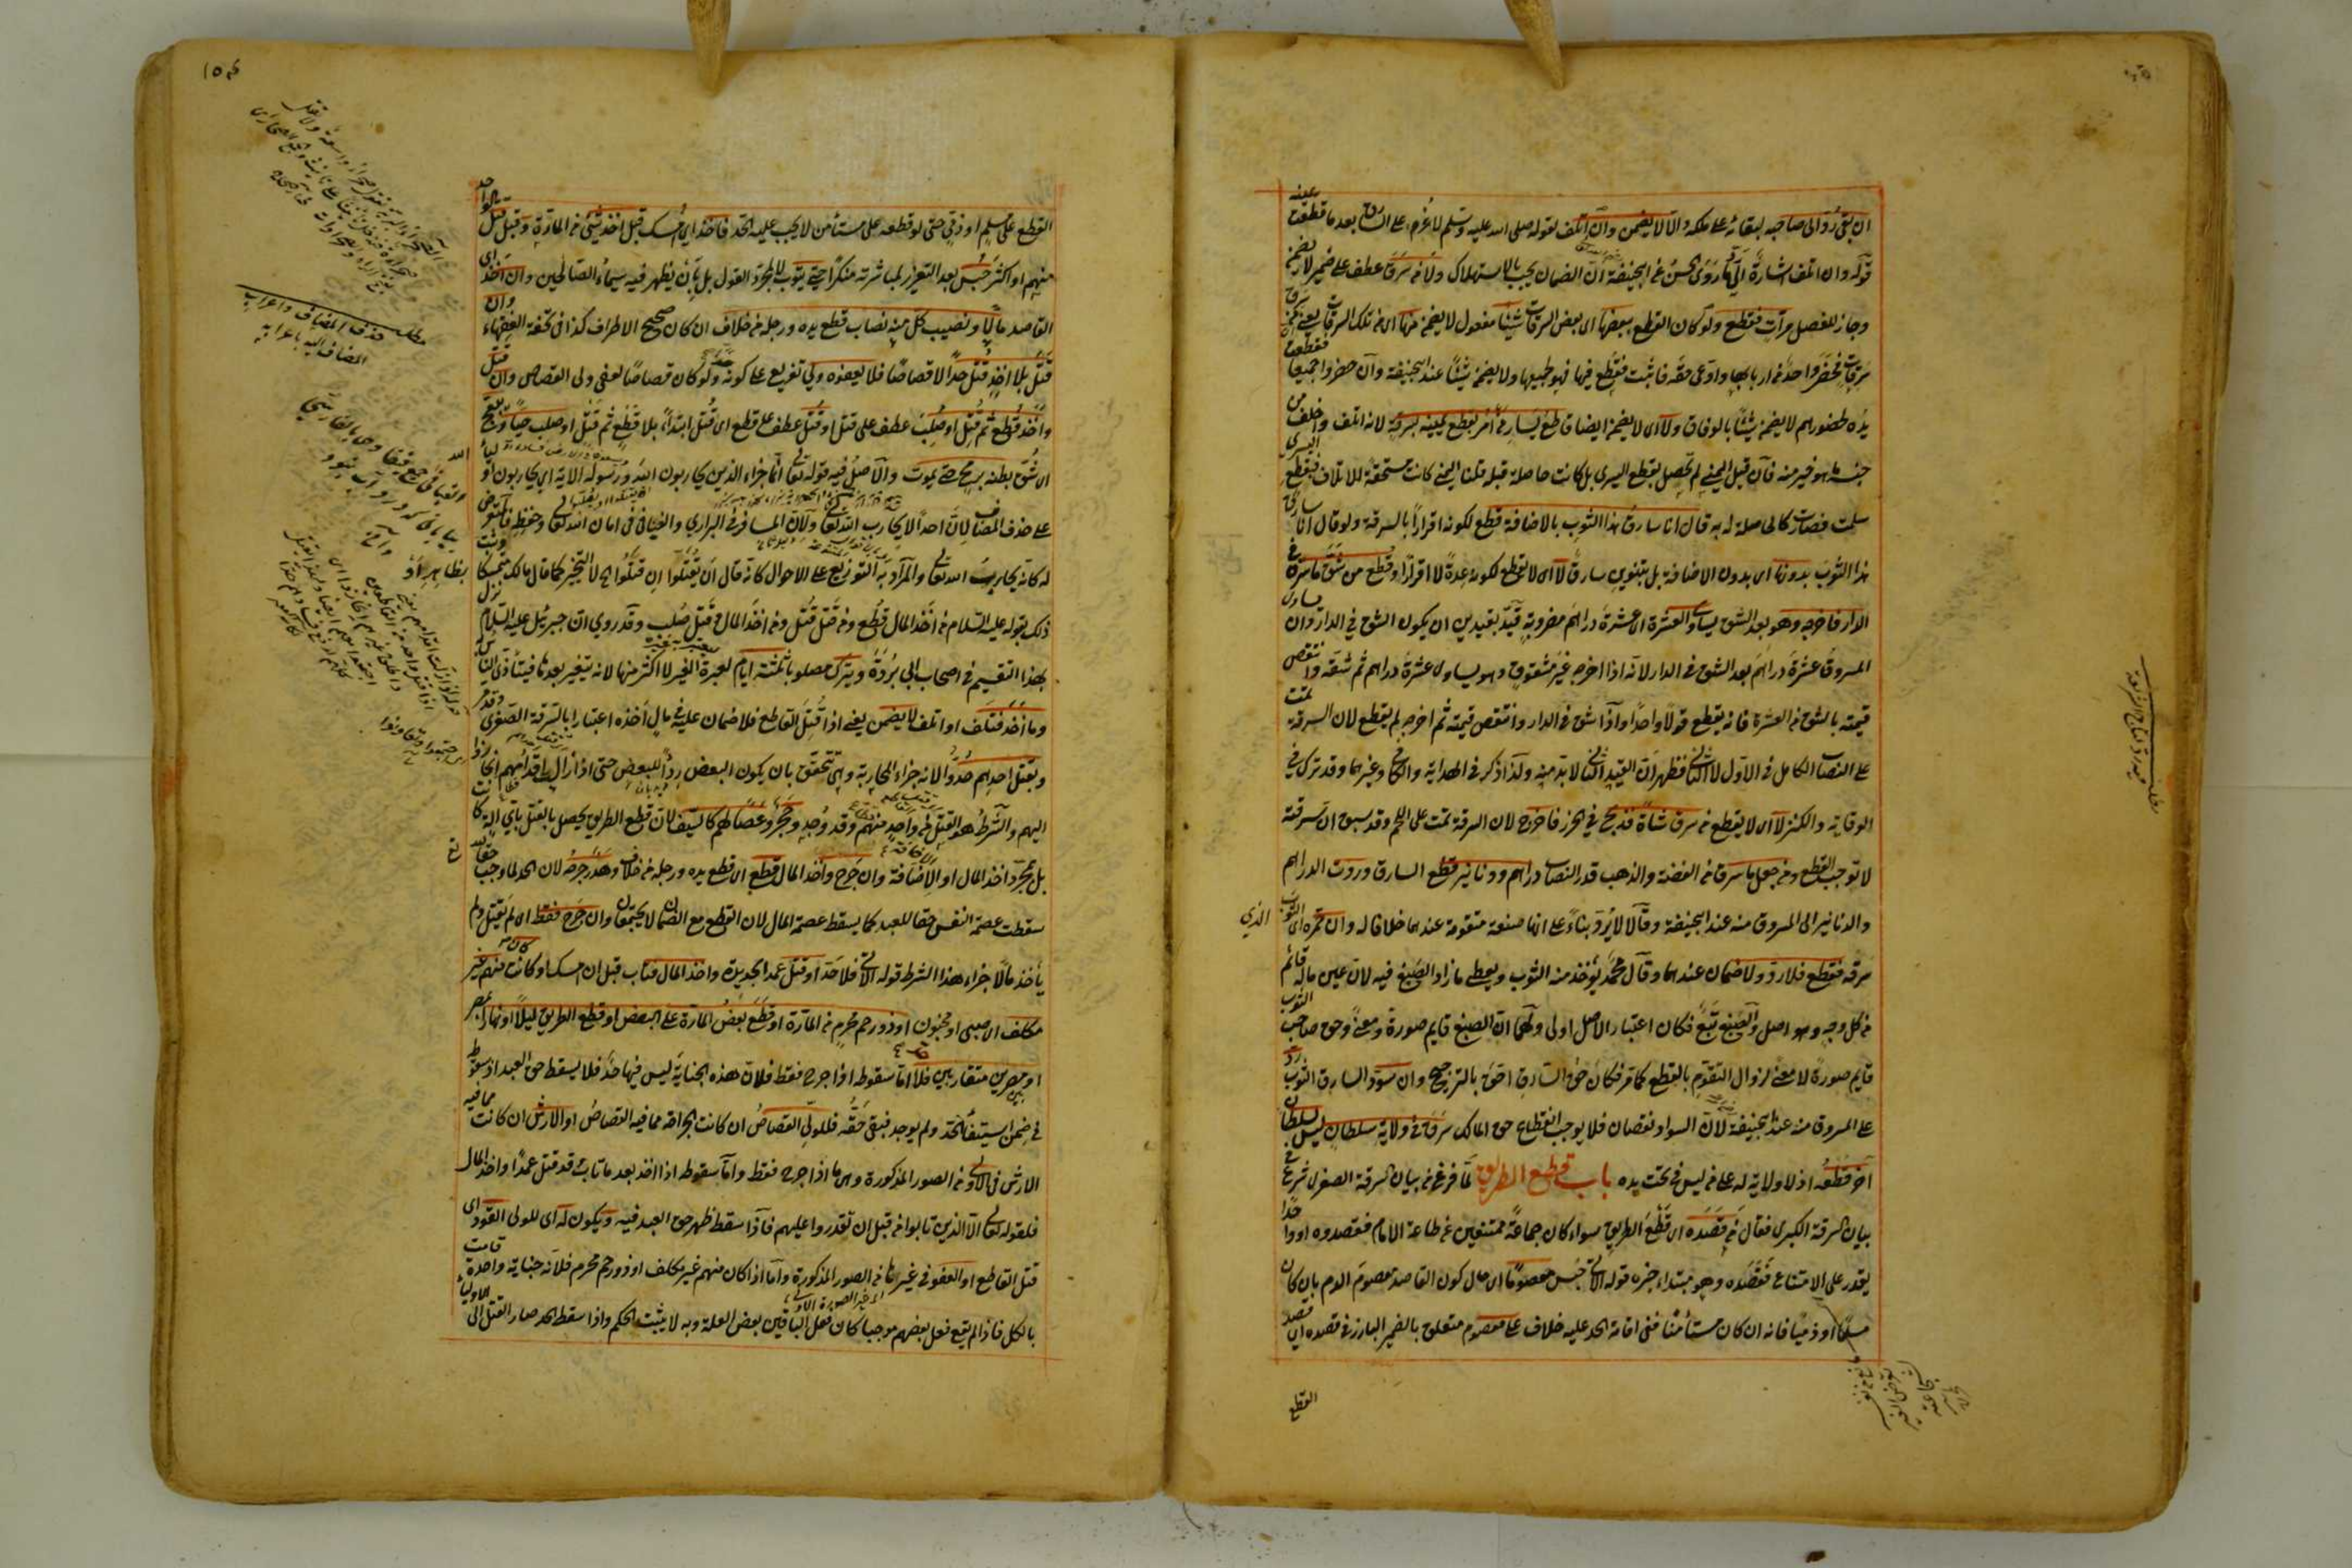 ان بقي رد الى صاحبه لبقائه على ملكه والا لا يضمن وان اتلف لقوله صلى الله عليه وسلم لا غرم على السارق بعد ما قطعت يمينه
قوله وان اتلف اشارة الى ما روى الحسن عن ابيحنيفة ان الضمان يجب بالاستهلاك ولا من سرق عطف على ضمير لا يضمن
وجاز للفصل مرات فقطع ولو كان القطع ببعضها اى بعض السرقات شيئا مفعول لا يضمن منها اى من تلك السرقات يعنى من سرق
سرقات فحضر واحد من اربابها وادعى حقه فاثبت فقطع فيها فهو لجميعها ولا يضمن شيئا عند ابيحنيفة وان حضروا جميعا فقطعت
يده لحضورهم لا يضمن شيئا بالوفاق ولا اى لا يضمن ايضا قاطع يسار من امر بقطع يمينه بسرقة لانه اتلف واخلف من
جنسه ما هو خير منه فان قبل اليمنى لم تحصل بقطع اليسرى بل كانت حاصلة قبله قلنا اليمنى كانت مستحقة للاتلاف فبقطع اليسرى
سلمت فصارت كالحاصلة له به قال انا سارق هذا الثوب بالاضافة قطع لكونه اقرارا بالسرقة ولو قال انا سارق
هذا الثوب بدونها اى بدون الاضافة بل بتنوين سارق لا اى لا يقطع لكونه عدة لا اقرارا وقطع من شق ما سرقه فى
الدار فاخرجه وهو بعد الشق يساوى العشرة اى عشرة دراهم مضروبة قيد بقيدين ان يكون الشق فى الدار وان يساوى
المسروق عشرة دراهم بعد الشق فى الدار لانه اذا اخرجه غير مشقوق وهو يساوى عشرة دراهم ثم شقه وانتقص
قيمته بالشق من العشرة فانه يقطع قولا واحدا واذا شق فى الدار وانتقص قيمته ثم اخرجه لم يقطع لان السرقة تمت
على النصاب الكامل فى الاول لا الثانى فظهر ان القيد الثانى لا بد منه ولذا ذكر فى الهداية والكافى وغيرهما وقد ترك فى
الوقاية والكنز لا اى لا يقطع من سرق شاة فذبح فى الحرز فاخرج لان السرقة تمت على اللحم وقد سبق ان سرقته
لا توجب القطع ومن جعل ما سرق من الفضة والذهب قدر النصاب دراهم ودنانير قطع السارق وردت الدراهم
والدنانير الى المسروق منه عند ابيحنيفة وقالا لا يرد بناء على انها صنعة متقومة عندهما خلافا له وان حمره اى الثوب الذي
سرقه فقطع فلا رد ولا ضمان عندهما وقال محمد يؤخذ منه الثوب ويعطى ما زاد الصبغ فيه لان عين ماله قائم
من كل وجه وهو اصل والصبغ تبع فكان اعتبار الاصل اولى ولهما ان الصبغ قايم صورة ومعنى وحق صاحب الثوب
قايم صورة لا معنى لزوال التقوم بالقطع كما مر فكان حق السارق احق بالترجيح وان سود السارق الثوب رد
على المسروق منه عند ابيحنيفة لان السواد نقصان فلا يوجب انقطاع حق المالك سرق فى ولاية سلطان ليس لسلطان
آخر قطعه اذ لا ولاية له على من ليس فى تحت يده باب قطع الطريق لما فرغ من بيان السرقة الصغرى شرع فى
بيان السرقة الكبرى فقال من قصده اى قطع الطريق سواء كان جماعة ممتنعين عن طاعة الامام فقصدوه او واحدا
يقدر على الامتناع فقصده وهو مبتداء خبره قوله الاتى حبس معصوما اى حال كون القاصد معصوم الدم بان كان
مسلما او ذميا فانه ان كان مستأمنا ففى اقامة الحد عليه خلاف على معصوم متعلق بالضمير البارز فى قصده اى قصد
القطع
القطع على مسلم او ذمي حتى لو قطعه على مستأمن لا يجب عليه الحد فاخذ اى مُسك قبل اخذ شئ من المارة وقبل قتل واحد
منهم او اكثر حُبس بعد التعزير لمباشرته منكرا حتى يتوب لا بمجرد القول بل بان يظهر فيه سيماء الصالحين وان اخذ اى
القاصد مالا ونصيب كل منه نصاب قطع يده ورجله من خلاف ان كان صحيح الاطراف كذا فى تحفة الفقهاء وان
قتل بلا اخذ قُتل حدا لا قصاصا فلا يعفوه ولي تفريع على كونه حدا ولو كان قصاصا لعفى ولى القصاص وان قتل
واخذ قُطع ثم قُتل او صُلب عطف على قتل او قُتل عطف على قطع اى قُتل ابتداء بلا قطع ثم قتل او صلب حيا وبعج
اى شُق بطنه برمح حتى يموت والاصل فيه قوله تعالى انما جزاء الذين يحاربون الله ورسوله الاية اى يحاربون اولياء الله
على حذف المضاف لان احدا لا يحارب الله تعالى ولان المسافر فى البراري والفيافى فى امان الله تعالى وحفظه فالمتعرض
له كانه يحارب الله تعالى والمراد به التوزيع على الاحوال كانه قال ان يقتلوا ان قتلوا الخ لا التخيير كما قال مالك متمسكا بظاهر او
ذلك بقوله عليه السلام من اخذ المال قُطع ومن قتل قُتل ومن اخذ المال وقتل صُلب وقد روي ان جبريل عليه السلام نزل
بهذا التقسيم فى اصحاب ابى بردة ويترك مصلوبا ثلثة ايام لعبرة الغير لا اكثر منها لانه يتغير بعدها فيتأذى الناس
وما اخذ فتلف او اتلف لا يضمن يعنى اذا قُتل القاطع فلا ضمان عليه فى مال اخذه اعتبارا بالسرقة الصغرى وقد مر
وبقتل احدهم حُدوا لانه جزاء المحاربة وهى تتحقق بان يكون البعض ردأ للبعض حتى اذا زالت اقدامهم انحازوا
اليهم والشرط هو القتل من واحد منهم وقد وُجد وحجر وعصا لهم كالسيف لان قطع الطريق يحصل بالقتل باي آلة كانت
بل بمجرد اخذ المال او الاخافة وان جَرح واخذ المال قطع اى قطع يده ورجله من خلاف وهدر جرحه لان الحد لما وجب حقا لله
سقطت عصمة النفس حقا للعبد كما يسقط عصمة المال لان القطع مع الضمان لا يجتمعان وان جَرح فقط اى لم يقتل ولم
يأخذ مالا جزاء هذا الشرط قوله الاتى فلا حد او قتل عمدا بحديدة واخذ المال فتاب قبل ان يمسك او كان منهم غير
مكلف اى صبى او مجنون او ذو رحم محرم من المارة او قطع بعض المارة على البعض او قطع الطريق ليلا او نهارا بمصر
او بين مصرين متقاربين فلا اما سقوطه اذا جرح فقط فلان هذه الجناية ليس فيها حد فلا يسقط حق العبد اذ سقوطه
فى ضمن استيفاء الحد ولم يوجد فبقى حقه فللولى القصاص ان كانت الجراحة مما فيه القصاص او الارش ان كانت مما فيه
الارش فى الاولى من الصور المذكورة وهى ما اذا جرح فقط واما سقوطه اذا اخذ بعد ما تاب وقد قتل عمدا واخذ المال
فلقوله تعالى الا الذين تابوا من قبل ان تقدروا عليهم فاذا سقط ظهر حق العبد فيه ويكون له اى للولى القود اى
قتل القاطع او العفو فى غيرها من الصور المذكورة واما اذا كان منهم غير مكلف او ذو رحم محرم فلانه جناية واحدة قامت
بالكل فاذا لم يقع فعل بعضهم موجبا كان فعل الباقين بعض العلة وبه لا يثبت الحكم واذا سقط الحد صار القتل الى الاولياء
مطلب حذف المضاف واعراب
المضاف اليه باعرابه